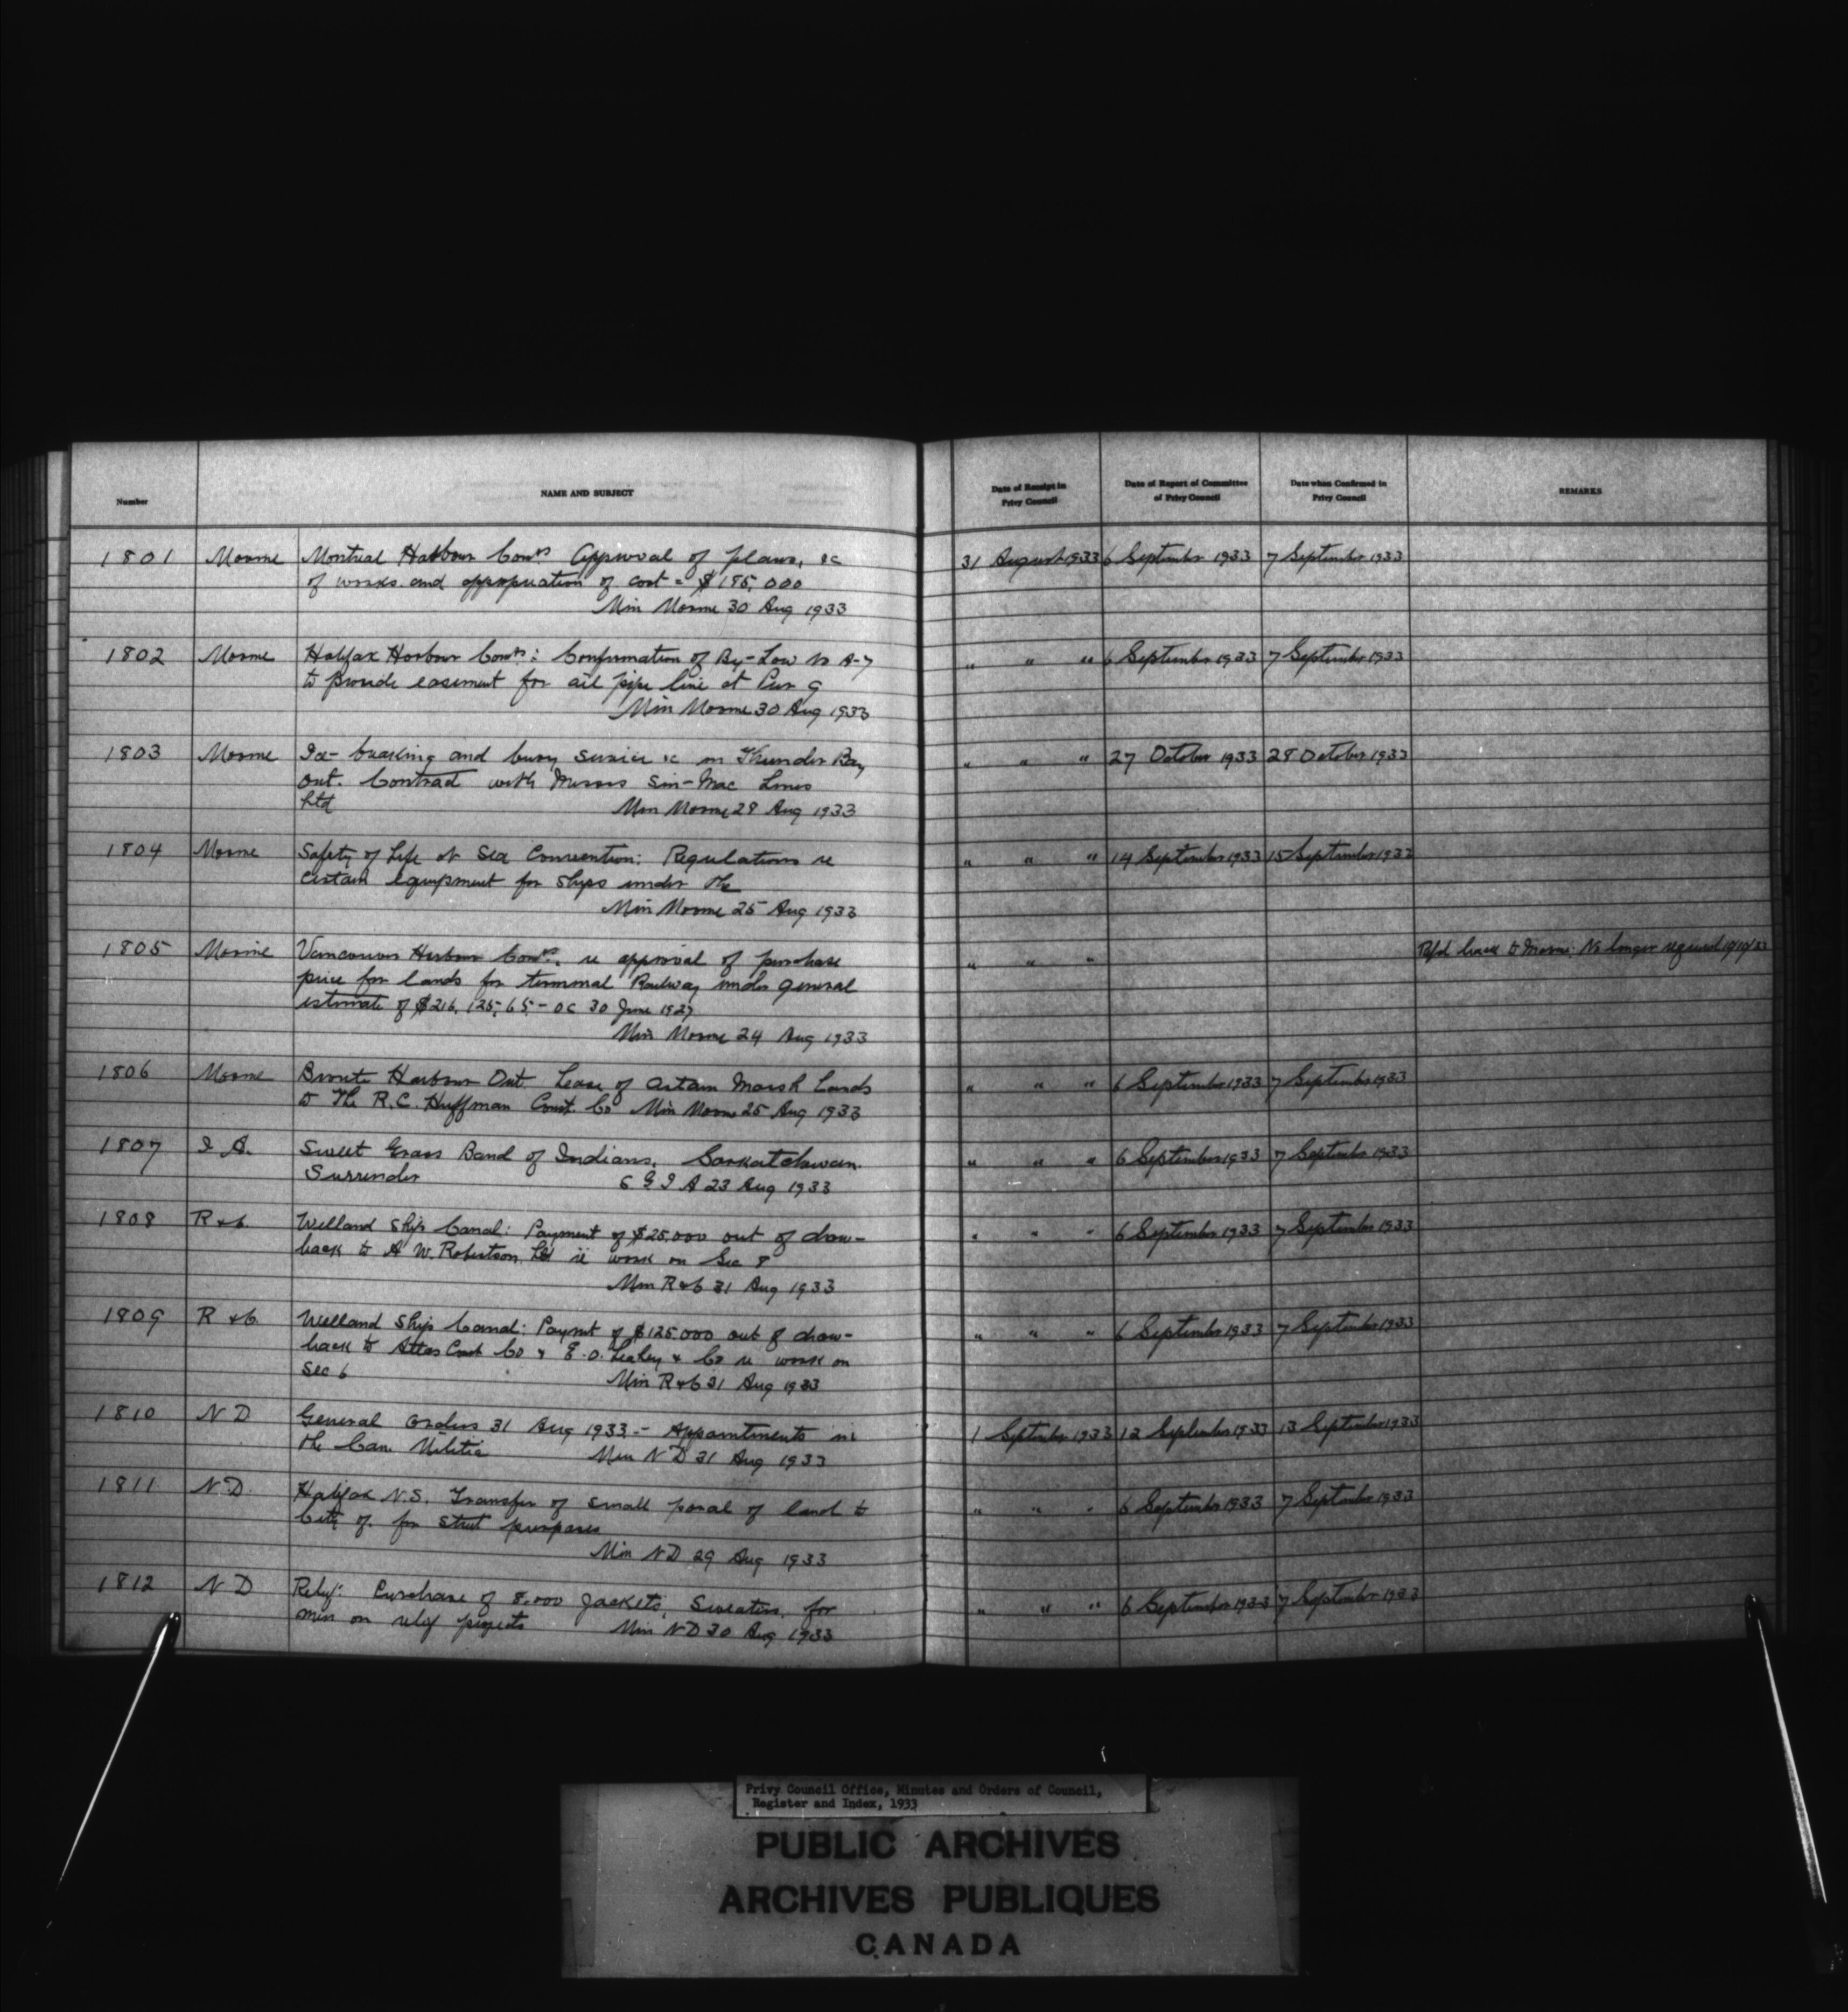 Number
NAME AND SUBJECT
Date of Receipt in
Privy Council
Date of Report of Committee
of Privy Council
Date when Confirmed in
Privy Council
REMARKS
1801 Marine Montreal Harbour Comrs Approval of plans, &c 31 August 1933 6 September 1933 7 September 1933
of works and appropriation of cost = $195,000
Min Marine 30 Aug 1933
1802 Marine Halifax Harbour Comrs: Confirmation of By-Law No A-7 " " " 6 September 1933 7 September 1933
to provide easement for oil pipe line at Pier 9
Min Marine 30 Aug 1933
1803 Marine Ice-breaking and buoy service &c in Thunder Bay " " " 27 October 1933 28 October 1933
Ont. Contract with Messrs Sin-Mac Lines
Ltd Min Marine 28 Aug 1933
1804 Marine Safety of Life at Sea Convention: Regulations re " " " 14 September 1933 15 September 1933
certain equipment for ships under the
Min Marine 25 Aug 1933
1805 Marine Vancouver Harbour Comrs. re approval of purchase " " " Refd back to Marine: No longer required
price for lands for terminal Railway under general
estimate of $216,125.65 - OC 30 June 1927
Min Marine 24 Aug 1933
1806 Marine Bronte Harbour Ont. Lease of certain Marsh Lands " " " 6 September 1933 7 September 1933
to the R.C. Huffman Const. Co Min Marine 25 Aug 1933
1807 I A. Sweet Grass Band of Indians, Saskatchewan. " " " 6 September 1933 7 September 1933
Surrender S G I A 23 Aug 1933
1808 R & C. Welland Ship Canal: Payment of $25,000 out of draw- " " " 6 September 1933 7 September 1933
back to A W. Robertson Ltd re work on Sec 8
Min R & C 31 Aug 1933
1809 R & C. Welland Ship Canal: Paymt of $125,000 out of draw- " " " 6 September 1933 7 September 1933
back to Atlas Const Co & E.O. Leahey & Co re work on
Sec 6 Min R & C 31 Aug 1933
1810 N D General Orders 31 Aug 1933 - Appointments in 1 September 1933 12 September 1933 13 September 1933
the Can. Militia Min N D 31 Aug 1933
1811 N.D. Halifax N.S. Transfer of small parcel of land to " " " 6 September 1933 7 September 1933
City of. for street purposes
Min N D 29 Aug 1933
1812 N D Relief: Purchase of 8,000 Jackets, Sweaters, for " " " 6 September 1933 7 September 1933
men on relief projects Min N D 30 Aug 1933
Privy Council Office, Minutes and Orders of Council,
Register and Index, 1933
PUBLIC ARCHIVES
ARCHIVES PUBLIQUES
CANADA